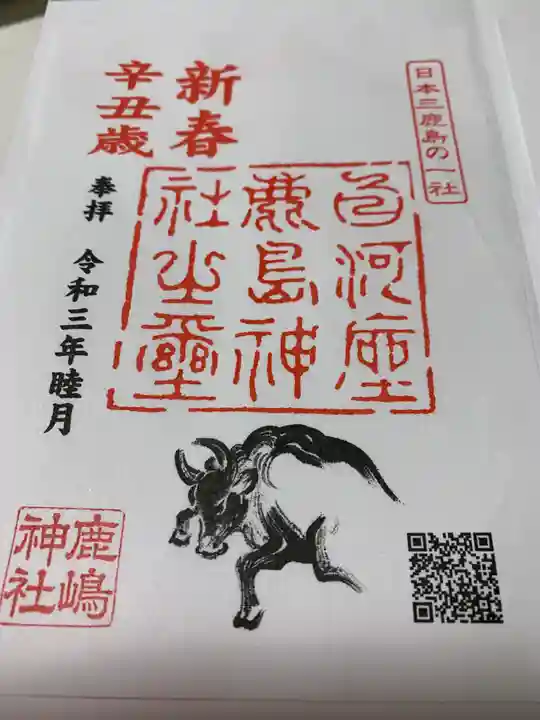 日本三鹿島の一社
新春
辛丑歳
白河座
鹿島神
社之璽
奉拝 令和三年睦月
鹿嶋
神社